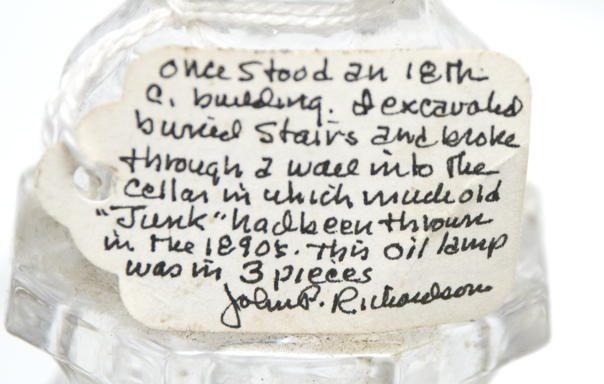 once stood an 18th
C. building. I excavated
buried stairs and broke
through a wall into the
Cellar in which much old
"Junk" had been thrown
in the 1890s. This oil lamp
was in 3 pieces
John P. Richardson